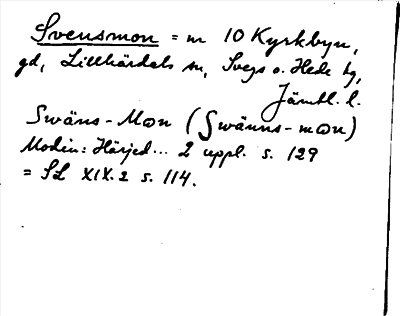 Svensmon = m 10 Kyrkbyn,
gd, Lillhärdals sn, Svegs o. Hede tg,
Jämtl. l.
Swäns-Mon (Swänns-mon)
Modin: Härjed... 2 uppl. s. 129
= SL XIX.2 s. 114.